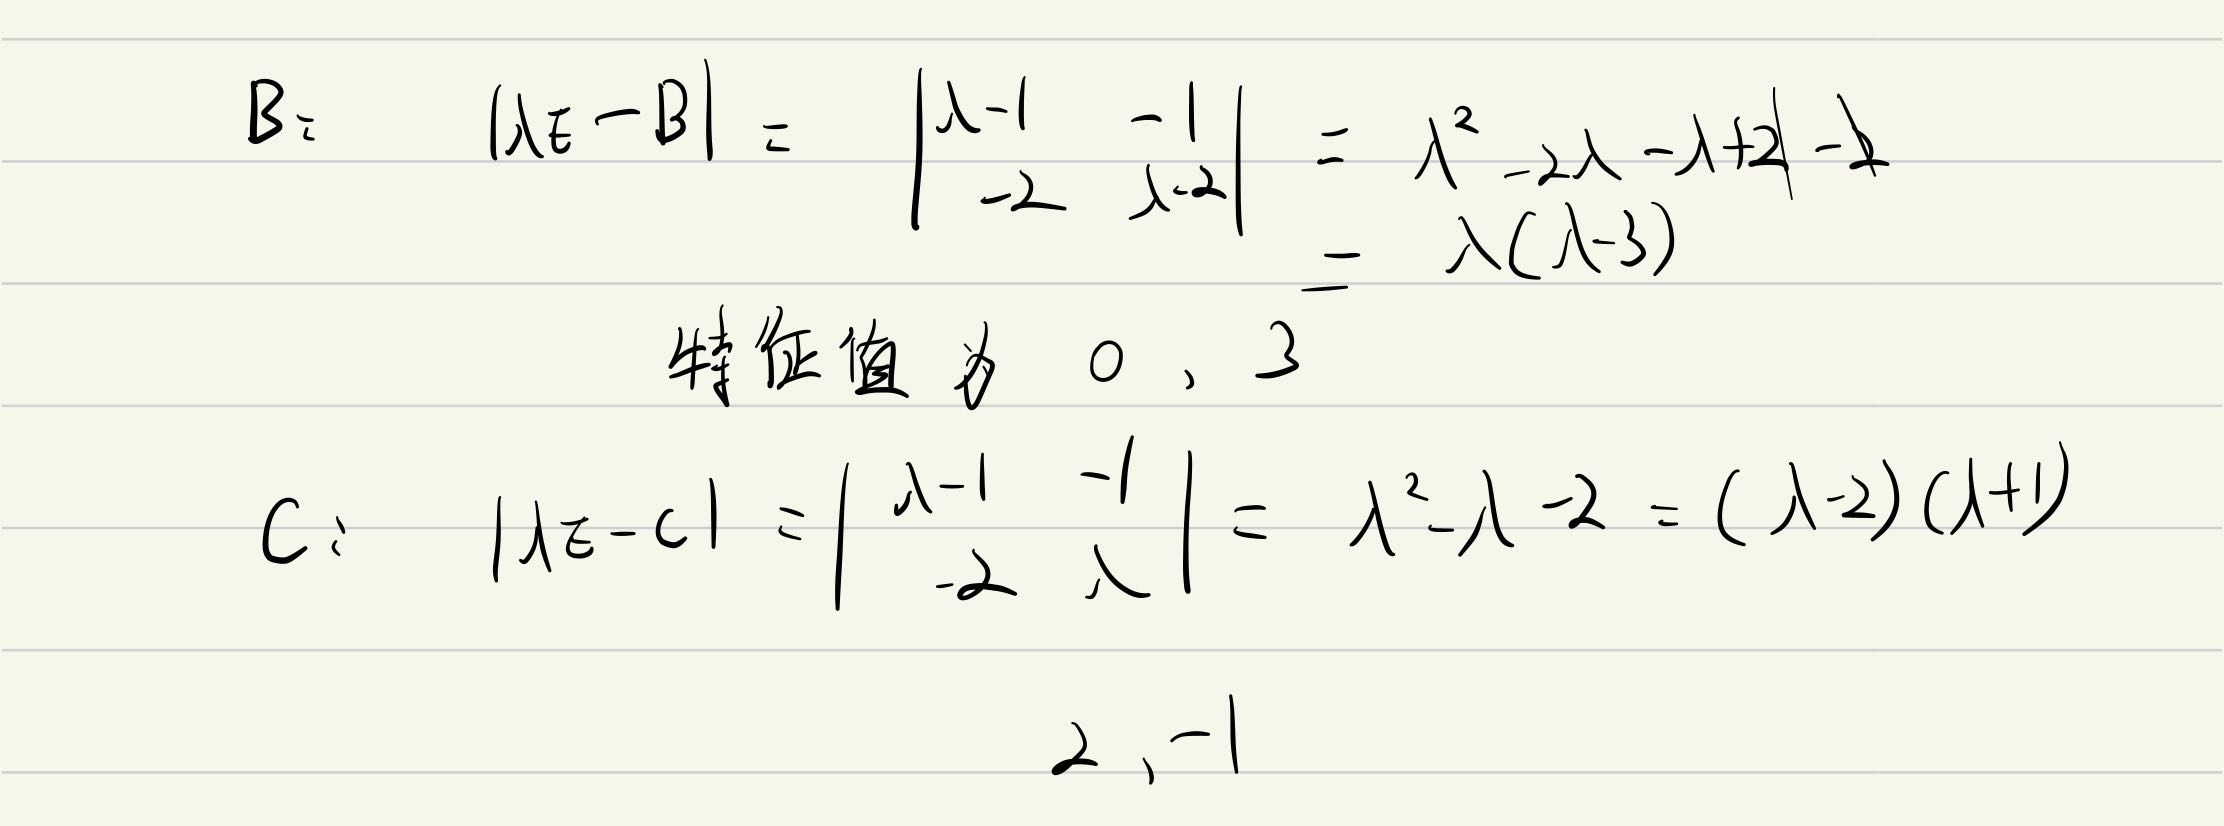 B: |λE-B| = |λ-1 -1| = λ²-2λ-λ+2-2
-2 λ-2
= λ(λ-3)
特征值为 0、3
C: |λE-C| = |λ-1 -1| = λ²-λ-2 = (λ-2)(λ+1)
-2 λ
2、-1